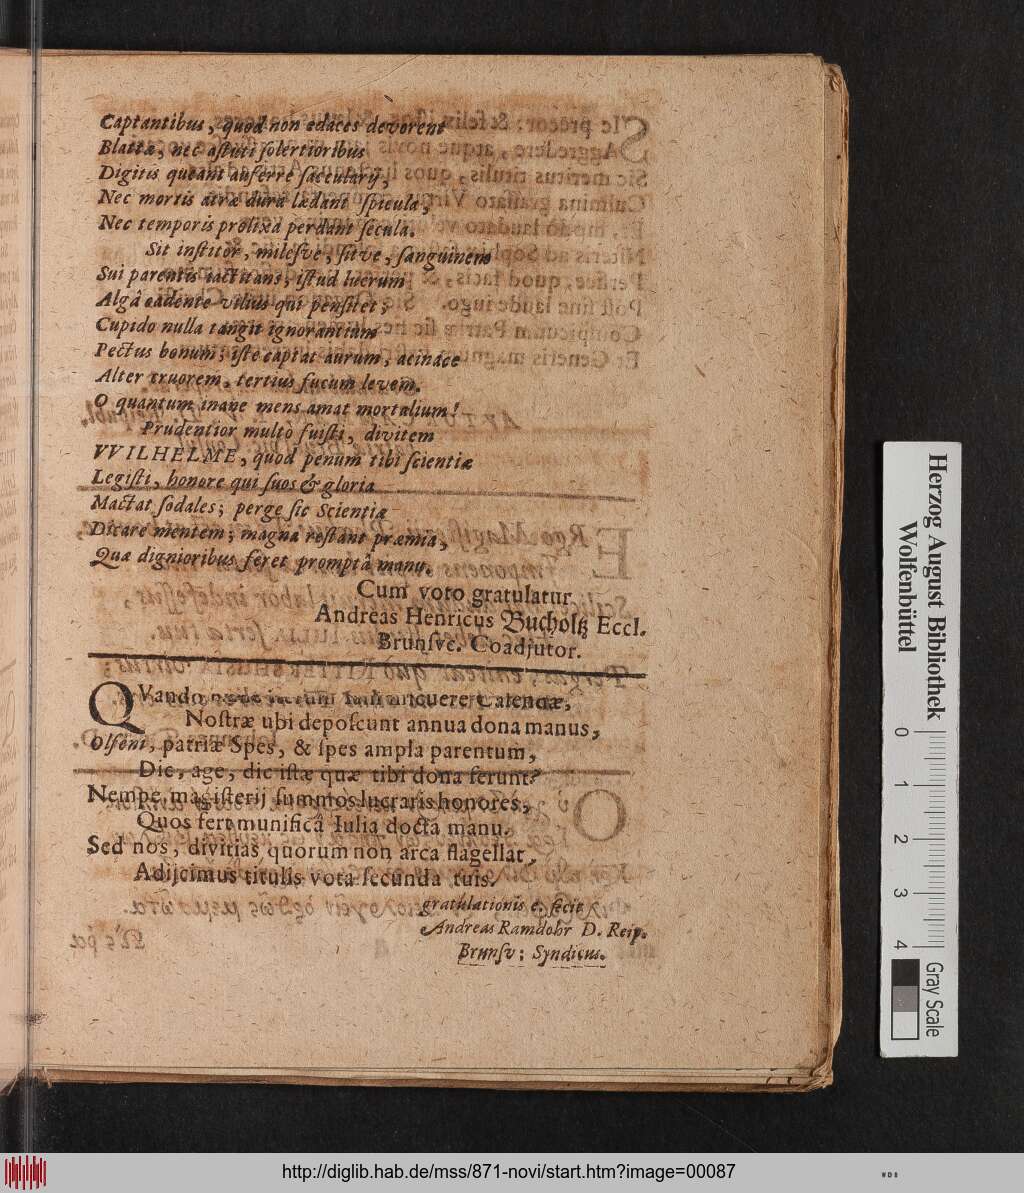 Captantibus, quod non edaces devorent
Blattæ, nec astuti solertioribus
Digitis queant auferre sacularij,
Nec mortis atræ dura lædant spicula,
Nec temporis prolixa perdant secula.
Sit institor, milesve, sitve, sanguinem
Sui parentis tactitans, istud lucrum
Algâ cadente vilius qui pensitet;
Cupido nulla tangit ignorantium
Pectus bonum; iste captat aurum, acinace
Alter cruorem, tertius fucum levem.
O quantum inane mens amat mortalium!
Prudentior multò fuisti, divitem
VVILHELME, quod penum tibi scientiæ
Legisti, honore qui suos & gloria
Mactat sodales; perge sic Scientiæ
Dicare mentem; magna restant præmia,
Quæ dignioribus feret promptâ manu.
Cum voto gratulatur
Andreas Henricus Bucholtz Eccl.
Brunsvc. Coadjutor.
QVando novæ Calendæ,
Nostræ ubi deposcunt annua dona manus,
Olfeni, patriæ Spes, & spes ampla parentum,
Dic, age, dic istæ quæ tibi dona ferunt?
Nempe magisterij summos lucraris honores,
Quos fert munificâ Iulia docta manu.
Sed nos, divitias quorum non arca flagellat,
Adijcimus titulis vota secunda tuis.
gratulationis e. fecit
Andreas Ramdohr D. Reip.
Brunsv: Syndicus.
Herzog August Bibliothek
Wolfenbüttel
0 1 2 3 4
Gray Scale
http://diglib.hab.de/mss/871-novi/start.htm?image=00087